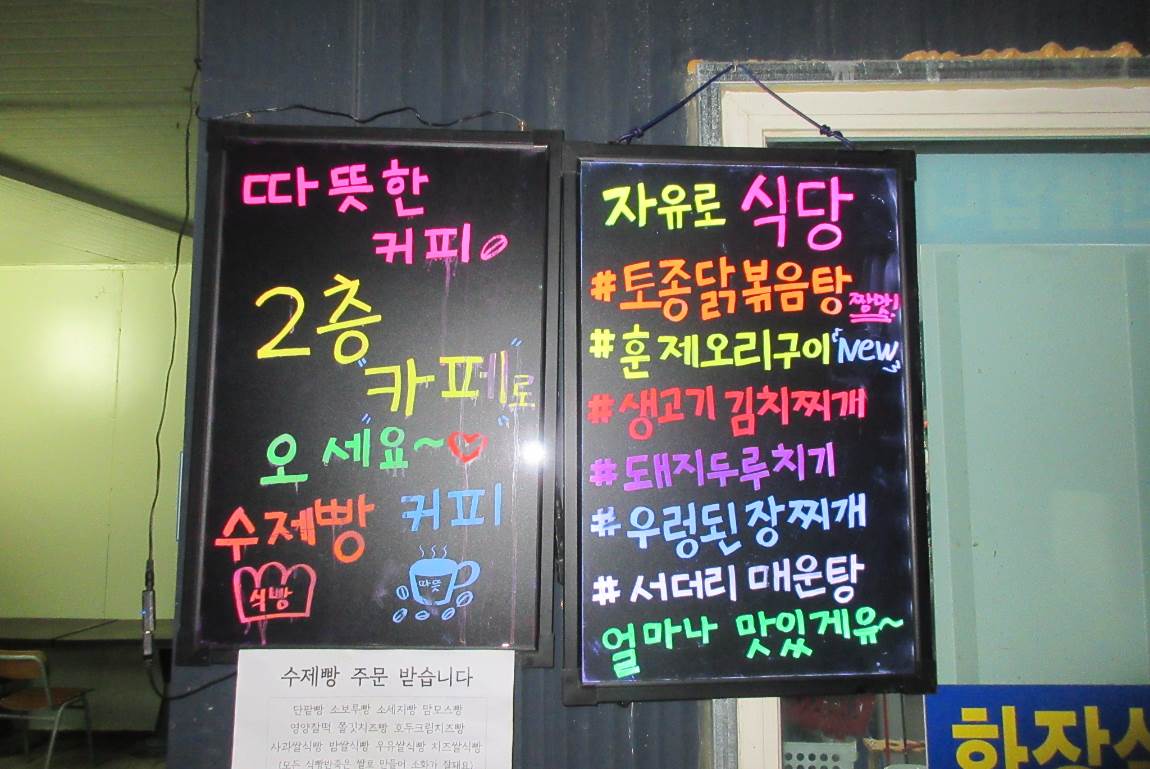 따뜻한
커피
2층
"카페"로
오세요~♡
수제빵 커피
식빵
따뜻
수제빵 주문 받습니다
단팥빵 소보루빵 소세지빵 맘모스빵
영양찰떡 쫄깃치즈빵 호두크림치즈빵
사과쌀식빵 밤쌀식빵 우유쌀식빵 치즈쌀식빵
(모든 식빵반죽은 쌀로 만들어 소화가 잘돼요)
자유로 식당
#토종닭볶음탕 짱맛!
#훈제오리구이 "New"
#생고기 김치찌개
#돼지두루치기
#우렁된장찌개
#서더리 매운탕
얼마나 맛있게유~
화장실